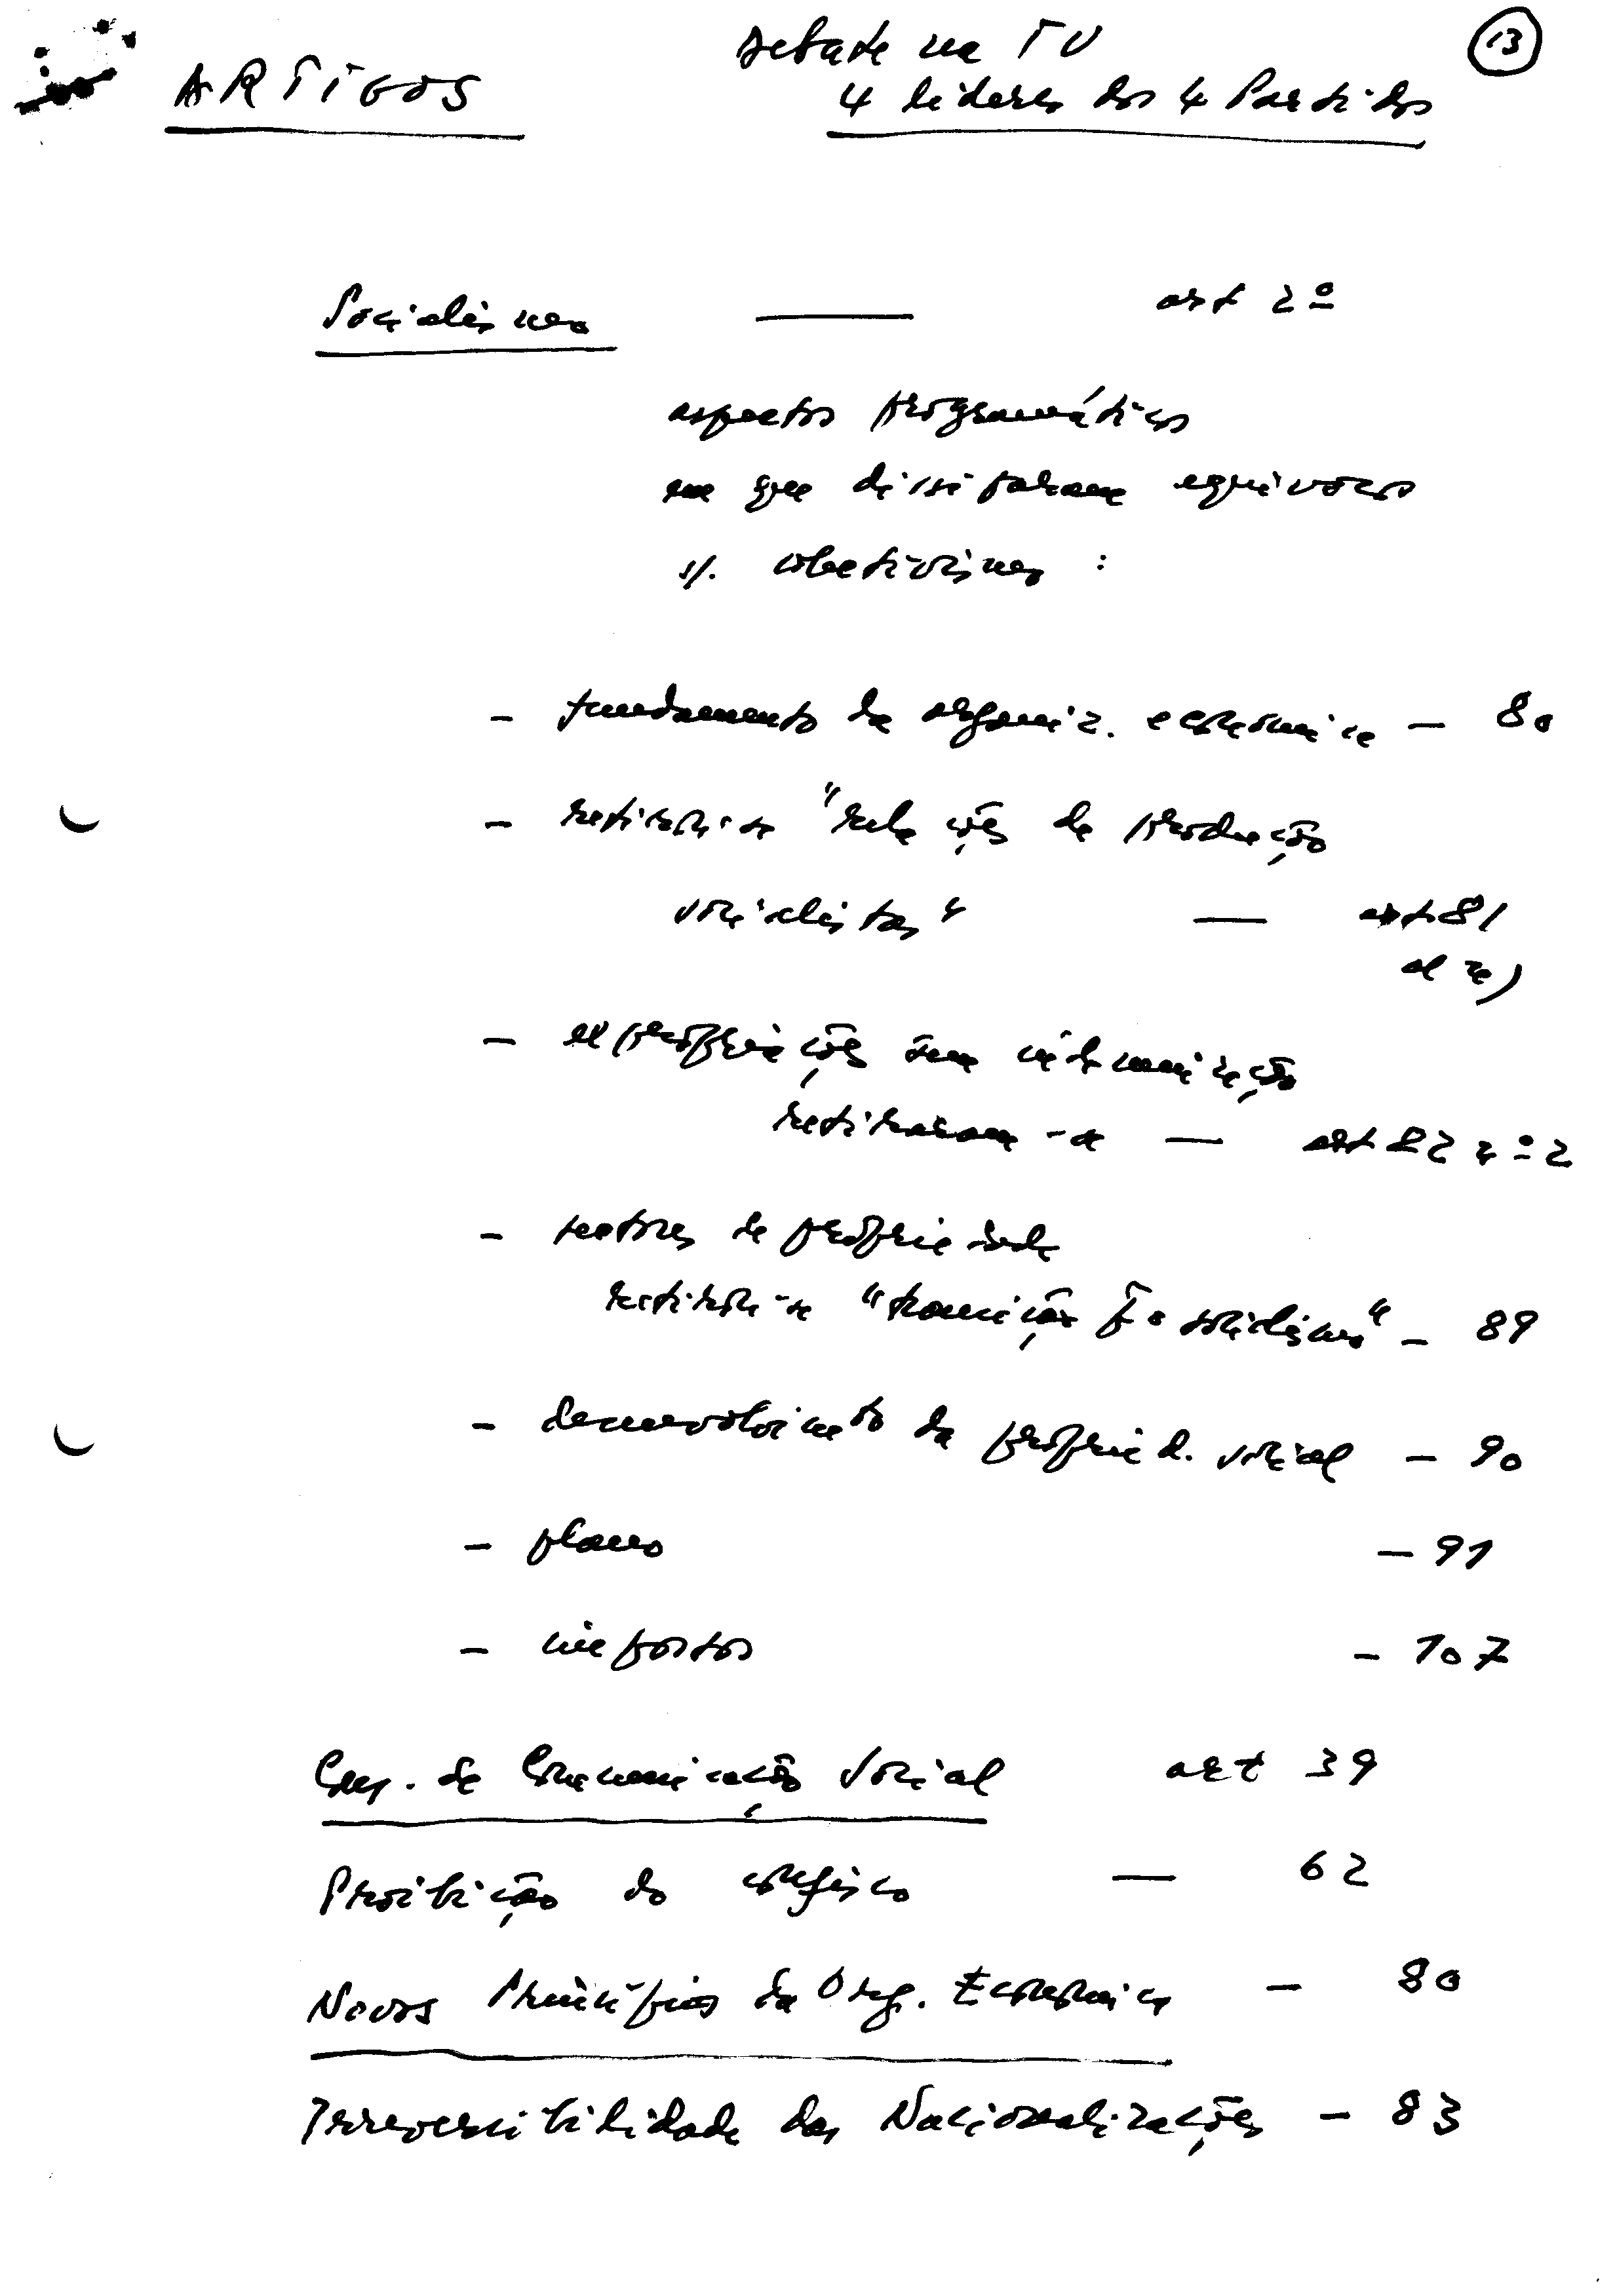 13
Debate na TV
ARTIGOS
4 lideres dos 4 Partidos
Socialismo — art 2º
aspectos programáticos
em que dissiparam equivocos
s/. coletivismo :
- fundamento da organiz. económica - 80
- retirou-se "relações de produção
socialistas" — art 81
al n)
- expropriações sem indemnização
retiraram-se — art 82 nº 2
- sectores de propriedade
retirou-se "transição p. o socialismo" - 89
- desenvolvimento da propried. social - 90
- plano - 91
- impostos - 107
Cons. de Comunicação Social art 39
Proibição do confisco — 62
Novos Princípios da Org. Económica - 80
Irreversibilidade das Nacionalizações - 83